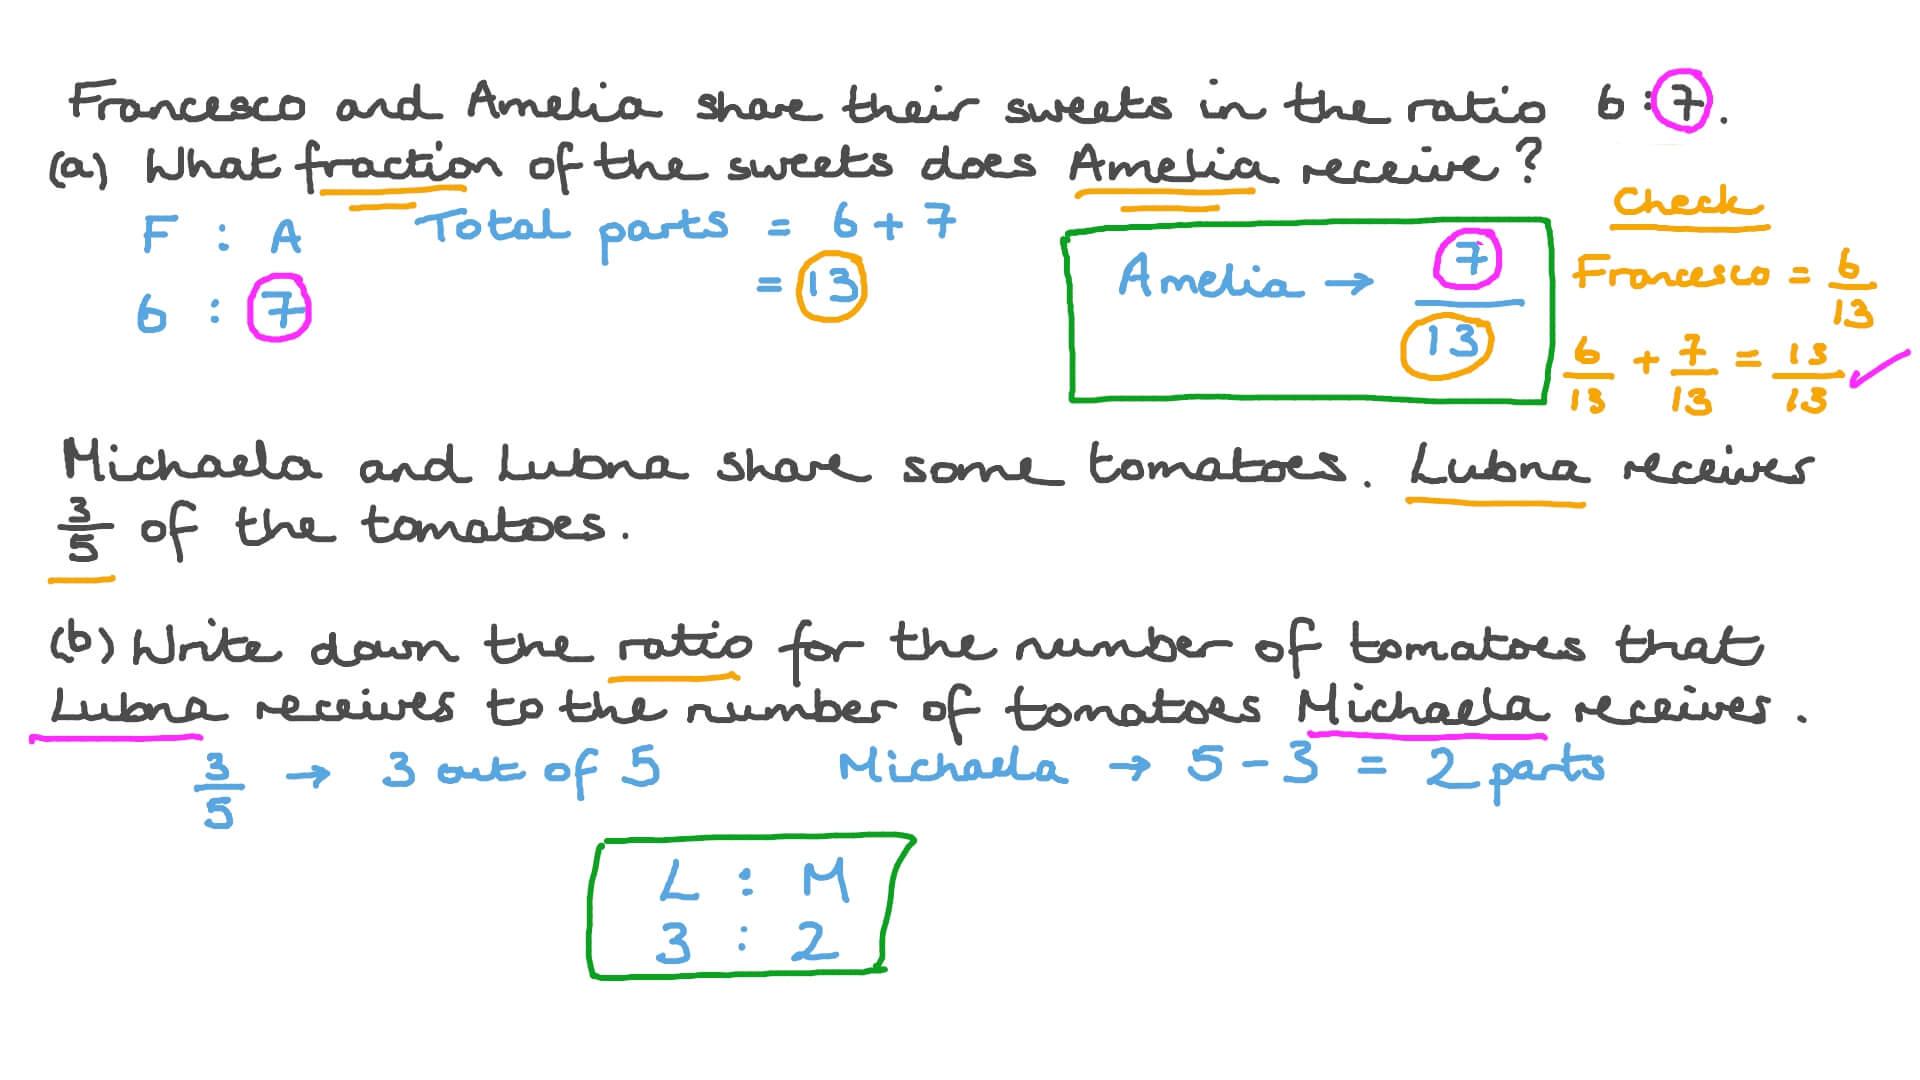 Francesco and Amelia share their sweets in the ratio 6 : 7.
(a) What fraction of the sweets does Amelia receive?
F : A
6 : 7
Total parts = 6 + 7
= 13
Amelia → 7/13
Check
Francesco = 6/13
6/13 + 7/13 = 13/13 ✓
Michaela and Lubna share some tomatoes. Lubna receives
3/5 of the tomatoes.
(b) Write down the ratio for the number of tomatoes that
Lubna receives to the number of tomatoes Michaela receives.
3/5 → 3 out of 5
Michaela → 5 - 3 = 2 parts
L : M
3 : 2